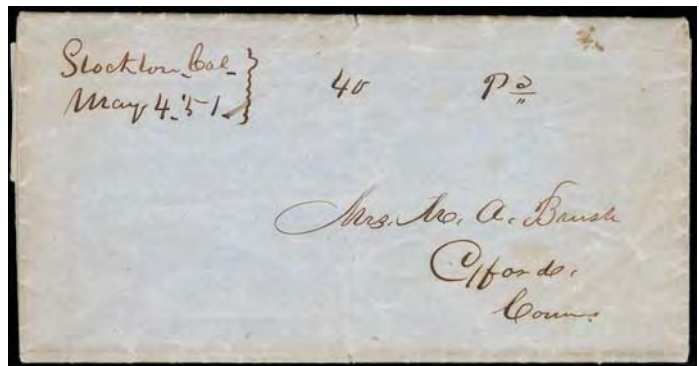 Stockton Cal
May 4. '51
40
Pd
Mrs. M. A. Brush
Conn.